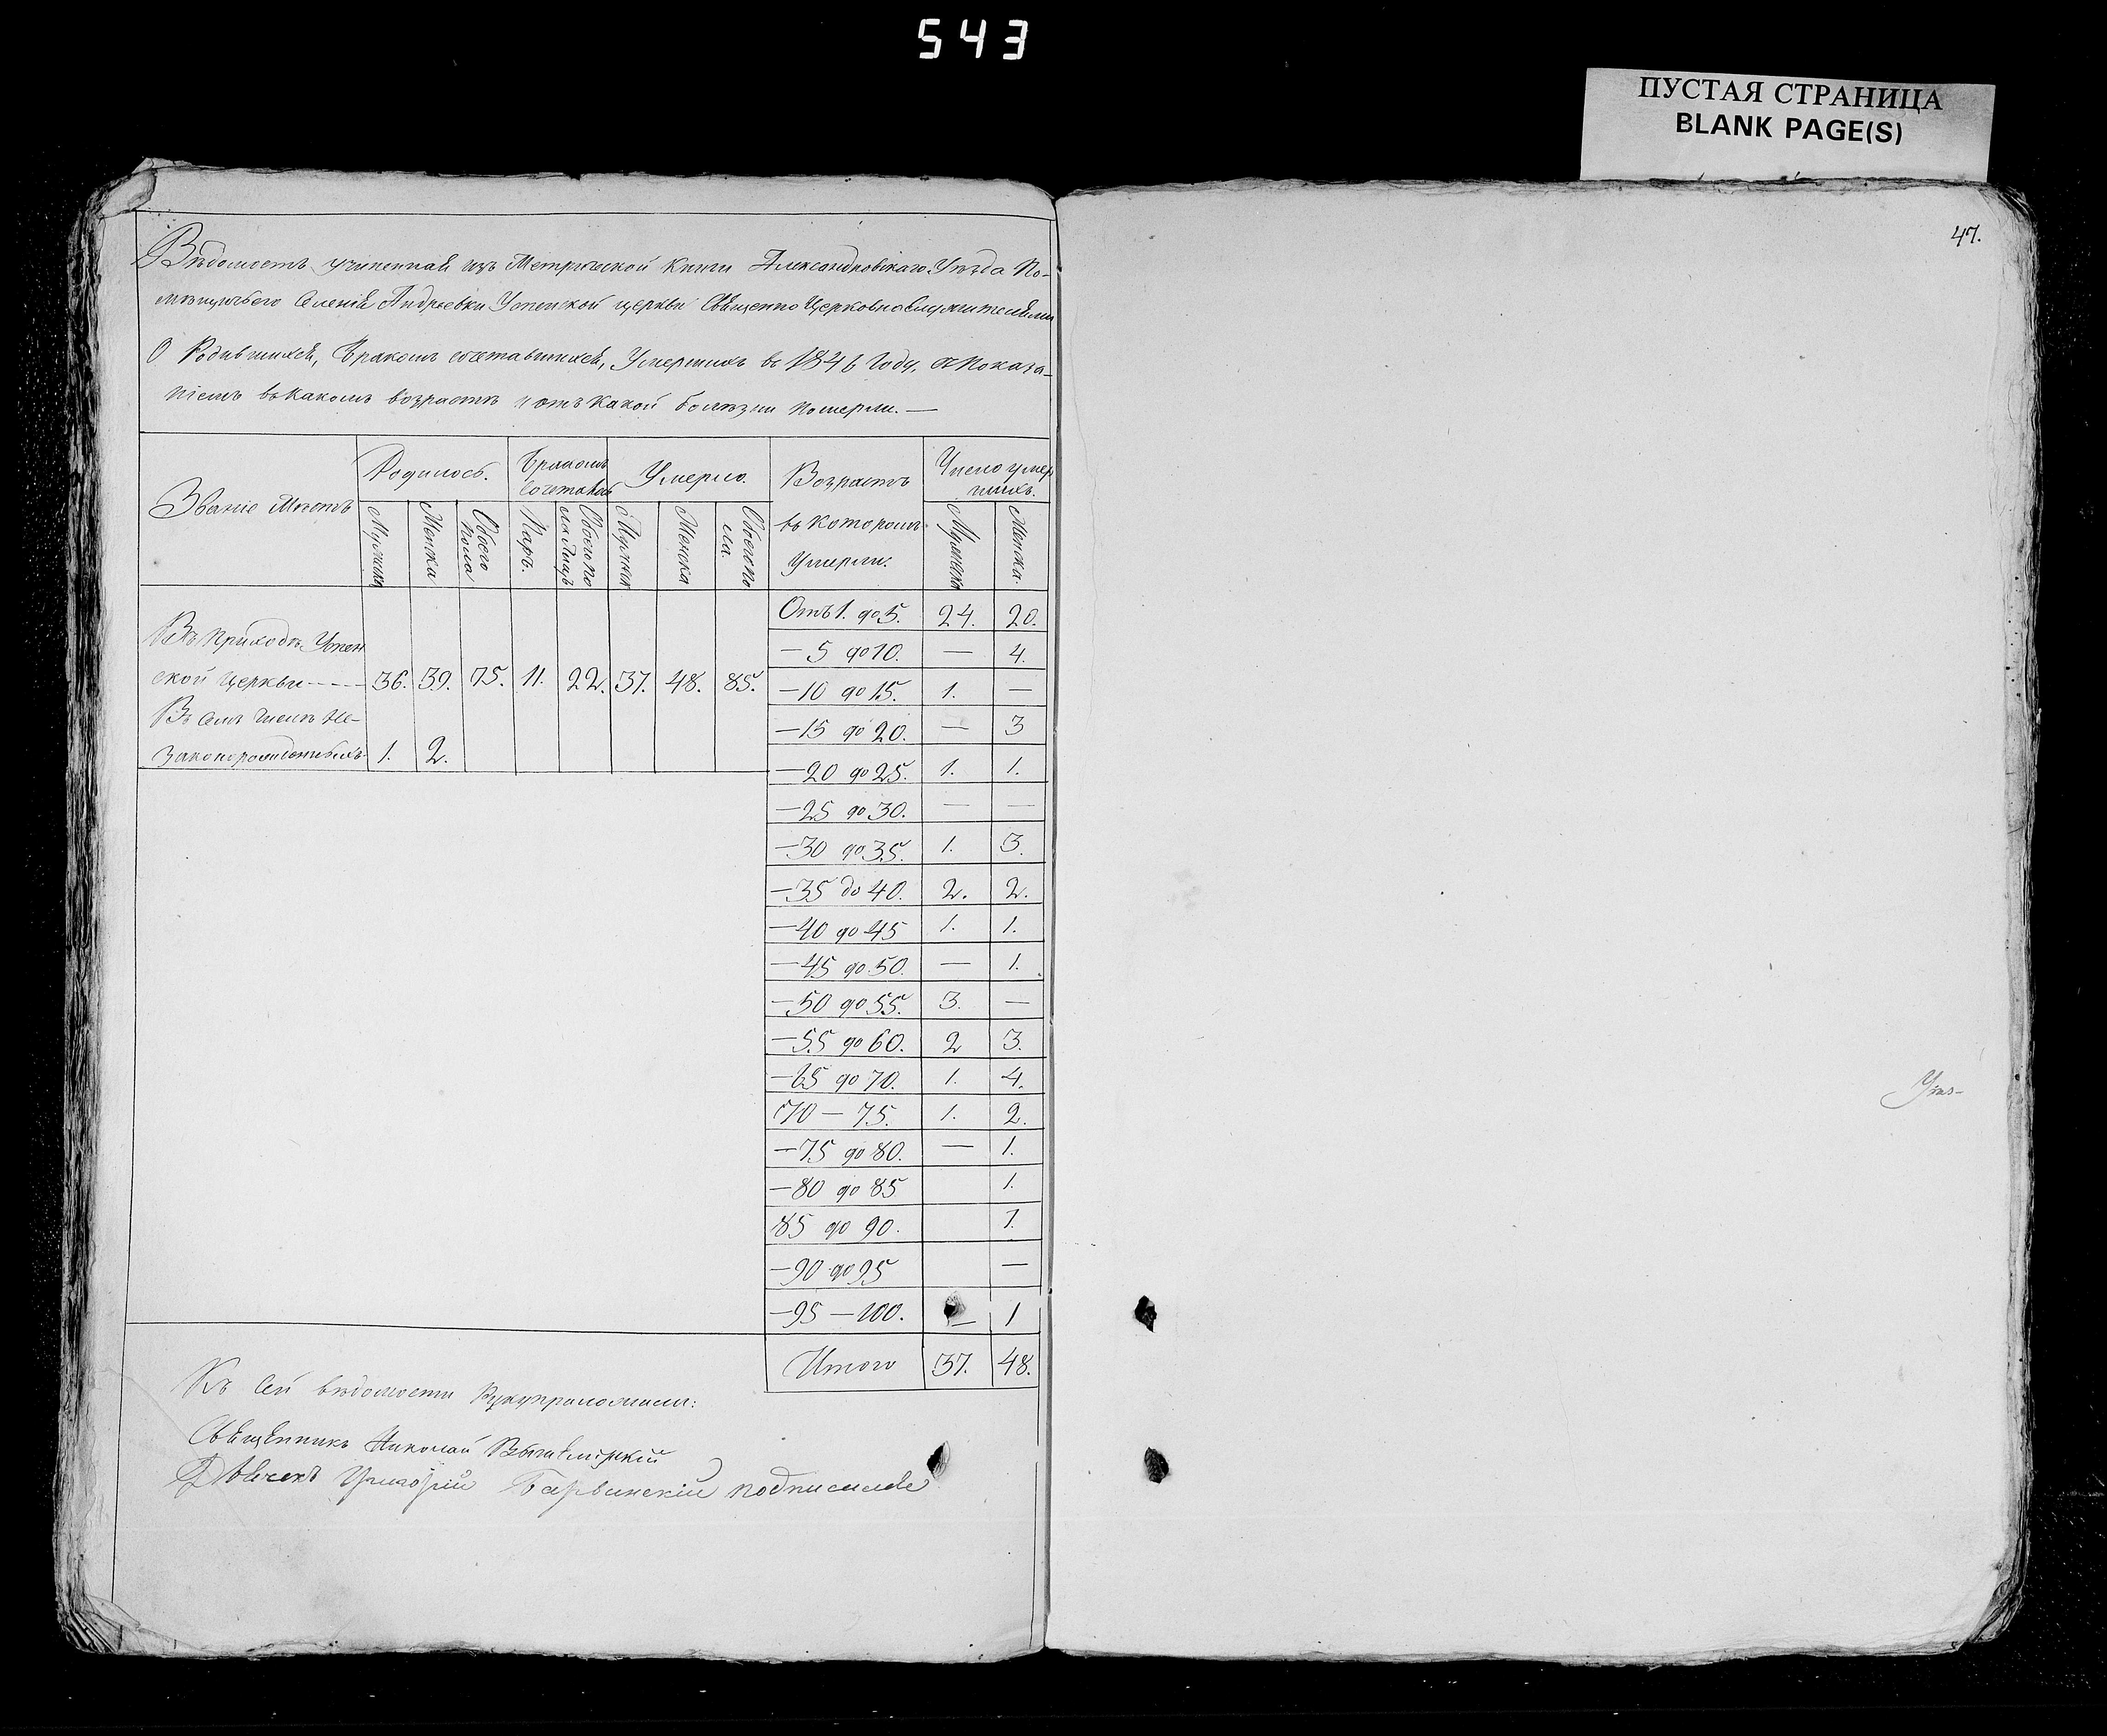 543
ПУСТАЯ СТРАНИЦА
BLANK PAGE(S)
47.
Вѣдомость учиненная изъ Метрической Книги Александровскаго Уѣзда По-
мѣщичьего Селенія Андреевки Успенской церкви Священно Церковнослужителями
О Родившихся, Бракомъ сочетавшихся, Умершихъ въ 1846 Году, съ Показа-
ніемъ въ какомъ возрастѣ и отъ какой болѣзни померли. —
Званіе Мѣстъ
Родилось.
Бракомъ
сочеталось
Умерло.
Возрастъ
въ которомъ
Умерли:
Число умер
шихъ.
Мужска
Женска
Обоего
пола
Паръ.
Обоего по
Мужска
Женска
Обоего по
ла.
Мужска
Женска.
Въ Приходѣ Успен
ской Церкви - - - - 36. 39. 75. 11. 22. 37. 48. 85.
Въ семъ числѣ Не-
законорожденныхъ 1. 2.
Отъ 1. до 5. 24. 20.
— 5 до 10. — 4.
— 10 до 15. 1. —
— 15 до 20. — 3
— 20 до 25. 1. 1.
— 25 до 30. — —
— 30 до 35. 1. 3.
— 35 до 40. 2. 2.
— 40 до 45 1. 1.
— 45 до 50. — 1.
— 50 до 55. 3. —
— 55 до 60. 2 3.
— 65 до 70. 1. 4.
70 — 75. 1. 2.
— 75 до 80. — 1.
— 80 до 85 1.
85 до 90. 1.
— 90 до 95 —
— 95 — 100. — 1
Итого 37. 48.
Къ сей вѣдомости Рукуприложили:
Священникъ Николай
Дьячекъ Григорій Барвинскій подписался